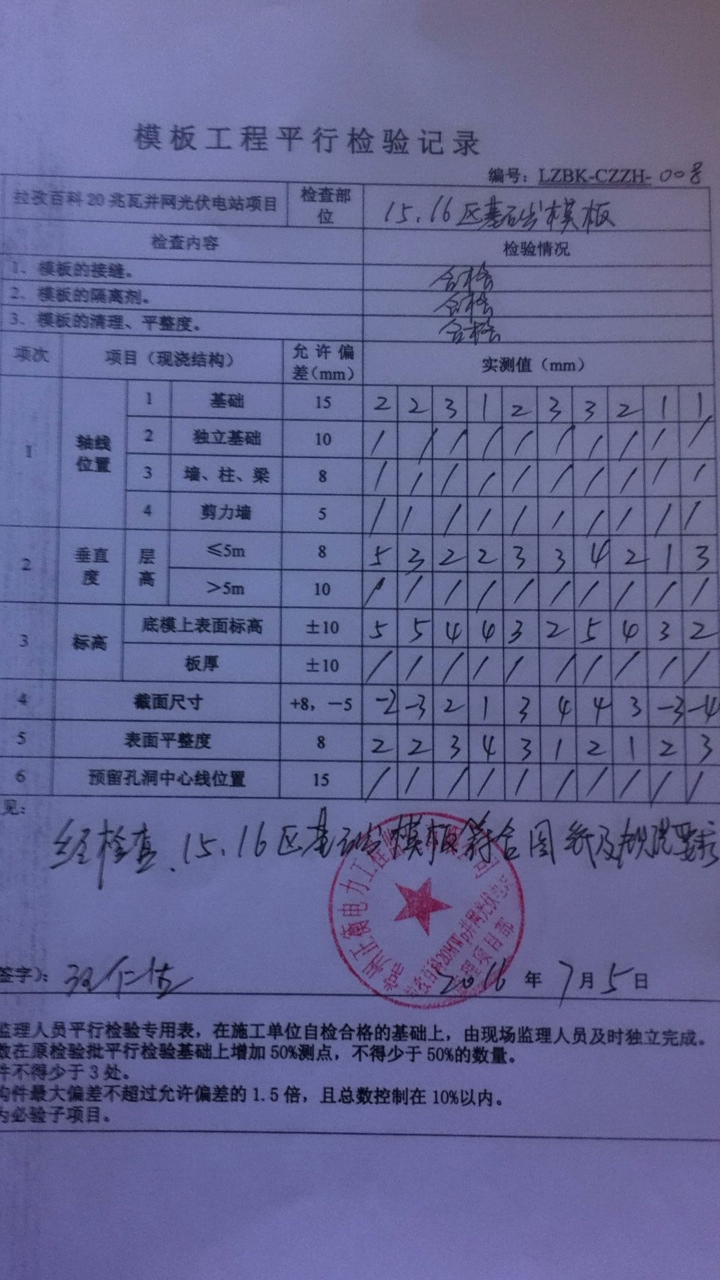 模板工程平行检验记录
编号：LZBK-CZZH-008
拉孜百科20兆瓦并网光伏电站项目 检查部位 15.16区基础模板
检查内容 检验情况
1、模板的接缝。 合格
2、模板的隔离剂。 合格
3、模板的清理、平整度。 合格
项次 项目（现浇结构） 允许偏差（mm） 实测值（mm）
1 轴线位置 1 基础 15 2 2 3 1 2 3 3 2 1 1
2 独立基础 10 / / / / / / / / / /
3 墙、柱、梁 8 / / / / / / / / / /
4 剪力墙 5 / / / / / / / / / /
2 垂直度 层高 ≤5m 8 5 3 2 2 3 3 4 2 1 3
>5m 10 / / / / / / / / / /
3 标高 底模上表面标高 ±10 5 5 4 4 3 2 5 4 3 2
板厚 ±10 / / / / / / / / / /
4 截面尺寸 +8，－5 -2 -3 2 1 3 4 4 3 -3 -4
5 表面平整度 8 2 2 3 4 3 1 2 1 2 3
6 预留孔洞中心线位置 15 / / / / / / / / / /
见：
经检查、15.16区基础模板符合图纸及规范要求
签字）： 2016年7月5日
监理人员平行检验专用表，在施工单位自检合格的基础上，由现场监理人员及时独立完成。
数在原检验批平行检验基础上增加50%测点，不得少于50%的数量。
件不得少于3处。
构件最大偏差不超过允许偏差的1.5倍，且总数控制在10%以内。
为必验子项目。